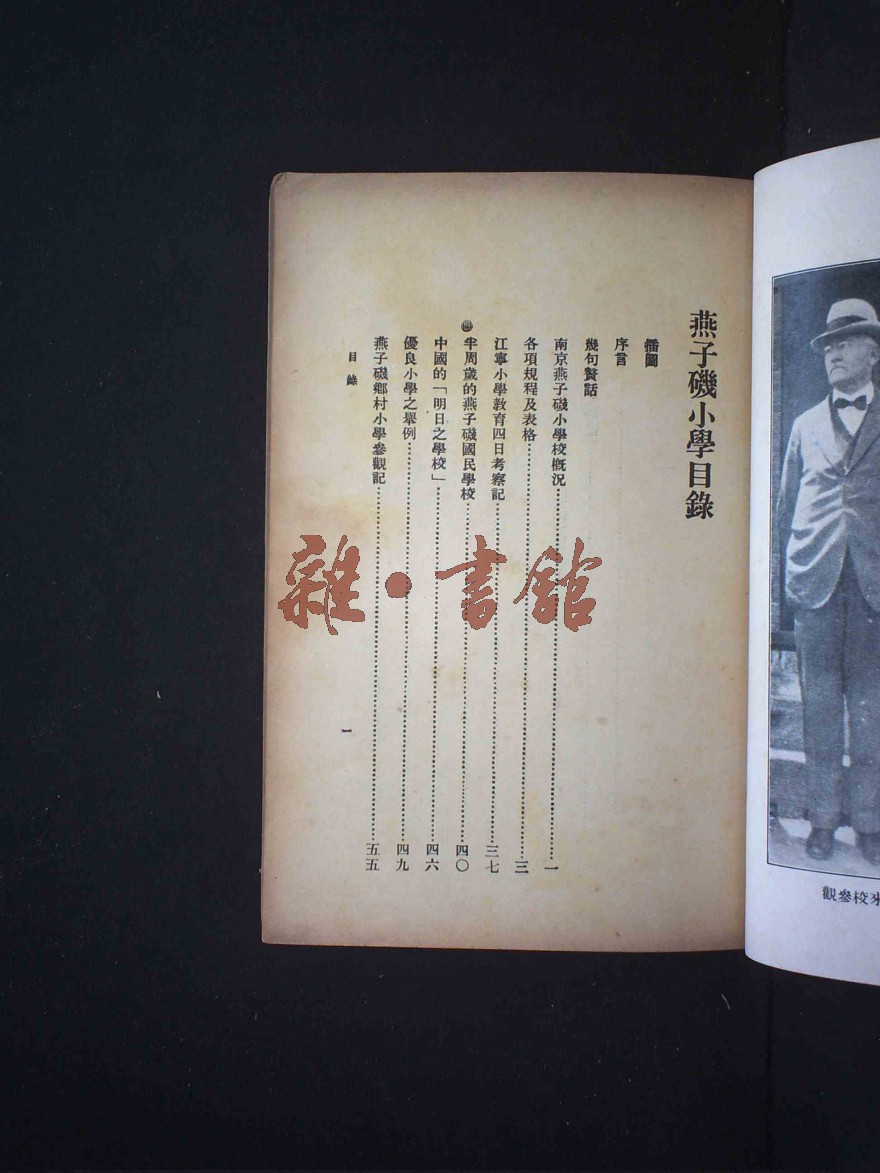 燕子磯小學目錄
插圖
序言
幾句贅話
南京燕子磯小學校概況………一
各項規程及表格………三
江寧小學教育四日考察記………三七
半周歲的燕子磯國民學校………四〇
中國的「明日之學校」………四六
優良小學之舉例………四九
燕子磯鄉村小學參觀記………五五
目錄
一
雜·書館
來校參觀